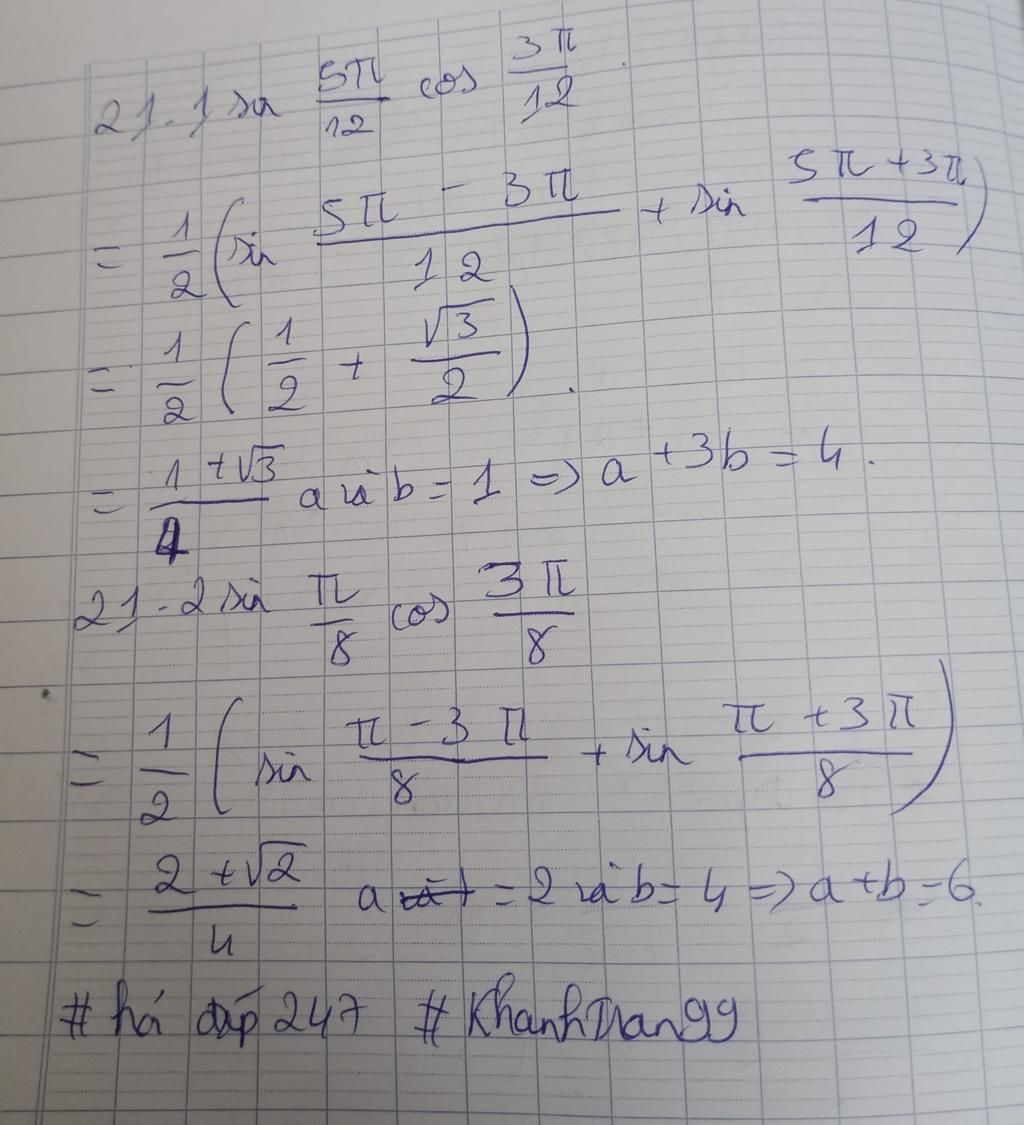 21.1 sin 5π/12 cos 3π/12
= 1/2 (sin (5π - 3π)/12 + sin (5π + 3π)/12)
= 1/2 (1/2 + √3/2).
= (1 + √3)/4 a và b = 1 => a + 3b = 4.
21.2 sin π/8 cos 3π/8
= 1/2 (sin (π - 3π)/8 + sin (π + 3π)/8)
= (2 + √2)/4 a = 2 và b = 4 => a + b = 6.
# hỏi đáp 247 # KhanhTran99